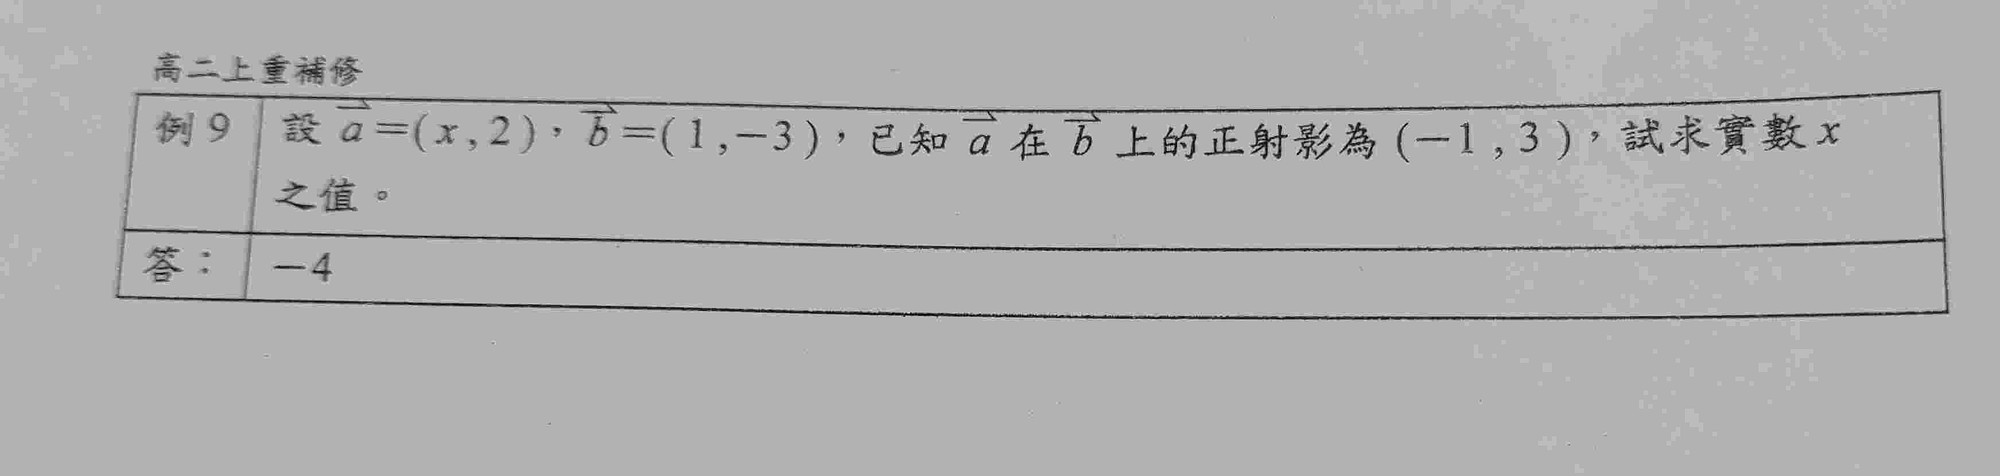 高二上重補修
例 9 設 $\vec{a}$=(x,2),$\vec{b}$=(1,-3),已知 $\vec{a}$ 在 $\vec{b}$ 上的正射影為 (-1,3),試求實數 x
之值。
答: -4